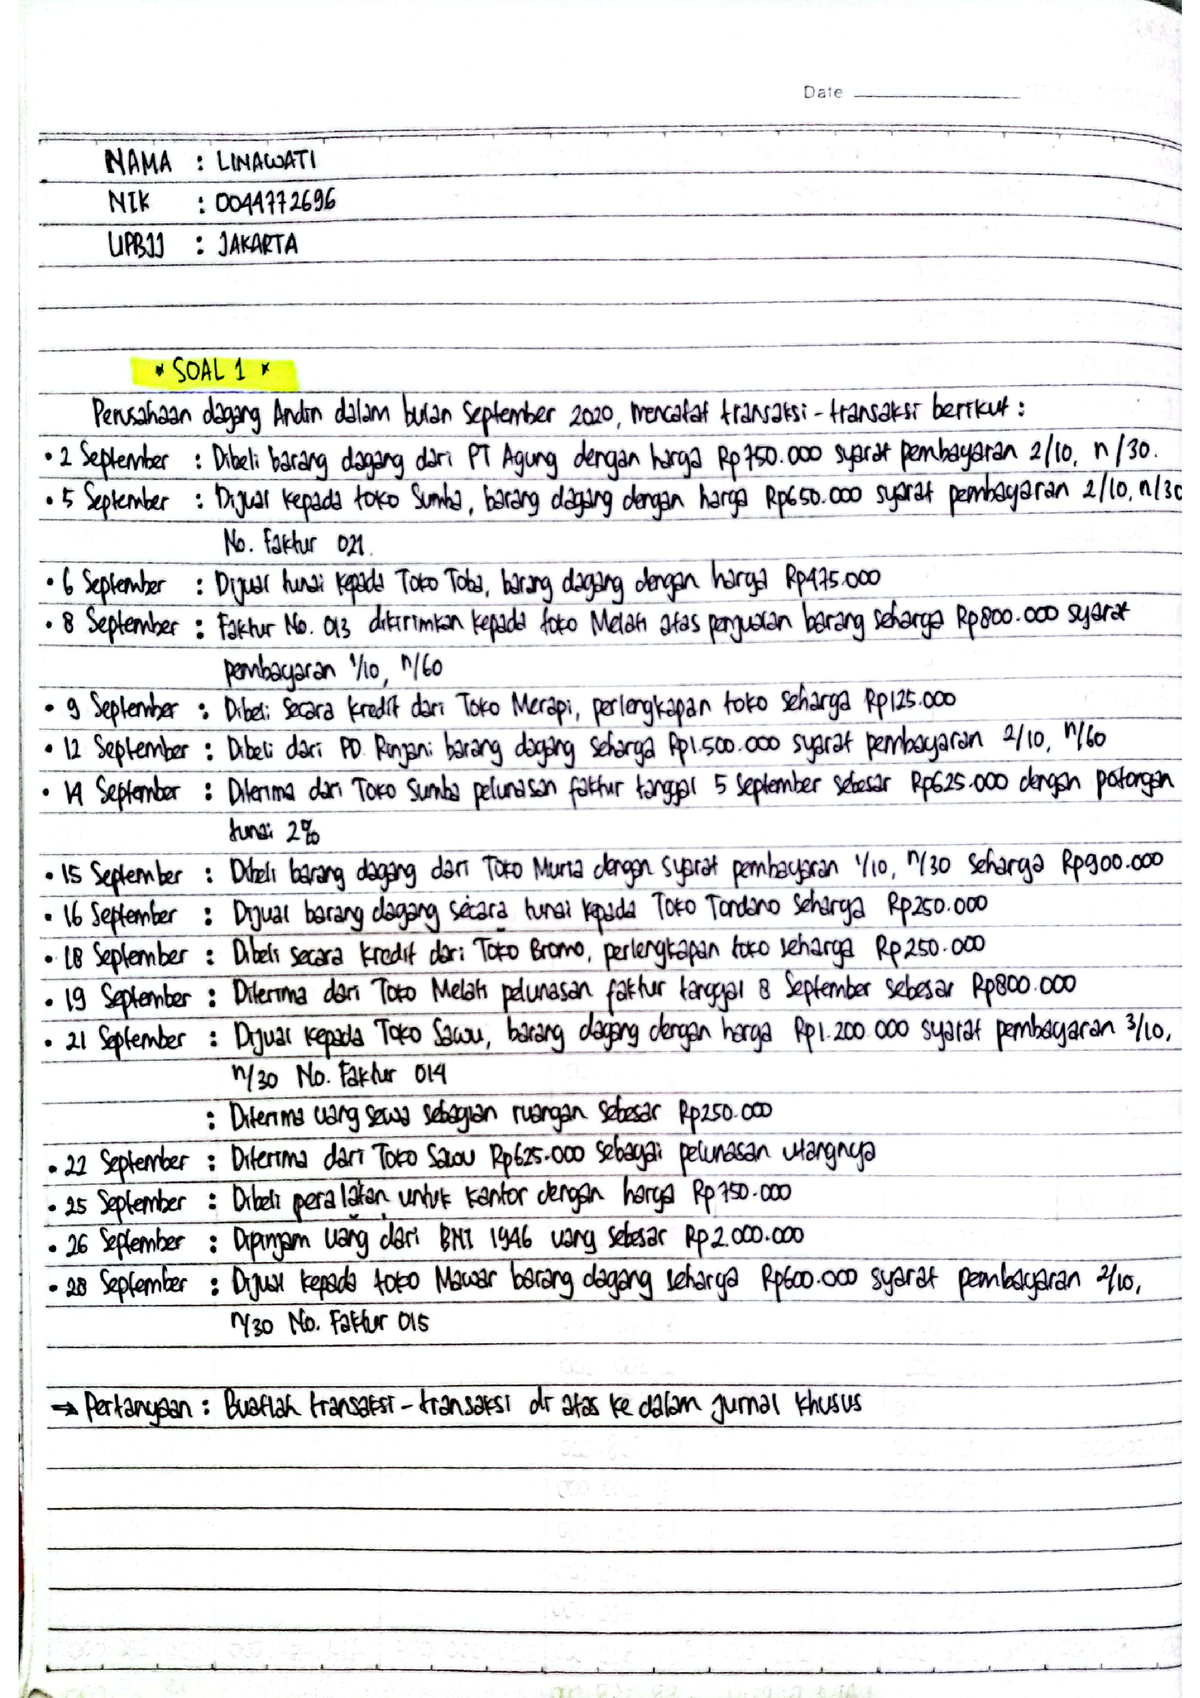 Date
NAMA : LINAWATI
NIK : 0044772696
UPBJJ : JAKARTA
* SOAL 1 *
Perusahaan dagang Andin dalam bulan September 2020, mencatat transaksi-transaksi berikut :
• 2 September : Dibeli barang dagang dari PT Agung dengan harga Rp750.000 syarat pembayaran 2/10, n/30.
• 5 September : Dijual kepada toko Sumba, barang dagang dengan harga Rp650.000 syarat pembayaran 2/10, n/30
No. Faktur 021.
• 6 September : Dijual tunai kepada Toko Toba, barang dagang dengan harga Rp475.000
• 8 September : Faktur No. 013 dikirimkan kepada toko Melati atas penjualan barang seharga Rp800.000 syarat
pembayaran 1/10, n/60
• 9 September : Dibeli secara kredit dari Toko Merapi, perlengkapan toko seharga Rp125.000
• 12 September : Dibeli dari PD. Rinjani barang dagang seharga Rp1.500.000 syarat pembayaran 2/10, n/60
• 14 September : Diterima dari Toko Sumba pelunasan faktur tanggal 5 September sebesar Rp625.000 dengan potongan
tunai 2%
• 15 September : Dibeli barang dagang dari Toko Muria dengan syarat pembayaran 1/10, n/30 seharga Rp900.000
• 16 September : Dijual barang dagang secara tunai kepada Toko Tondano seharga Rp250.000
• 18 September : Dibeli secara kredit dari Toko Bromo, perlengkapan toko seharga Rp250.000
• 19 September : Diterima dari Toko Melati pelunasan faktur tanggal 8 September sebesar Rp800.000
• 21 September : Dijual kepada Toko Sawu, barang dagang dengan harga Rp1.200.000 syarat pembayaran 3/10,
n/30 No. Faktur 014
: Diterima uang sewa sebagian ruangan sebesar Rp250.000
• 22 September : Diterima dari Toko Sawu Rp625.000 sebagai pelunasan utangnya
• 25 September : Dibeli peralatan untuk kantor dengan harga Rp750.000
• 26 September : Dipinjam uang dari BNI 1946 uang sebesar Rp2.000.000
• 28 September : Dijual kepada toko Mawar barang dagang seharga Rp600.000 syarat pembayaran 2/10,
n/30 No. Faktur 015
→ Pertanyaan : Buatlah transaksi-transaksi di atas ke dalam jurnal khusus